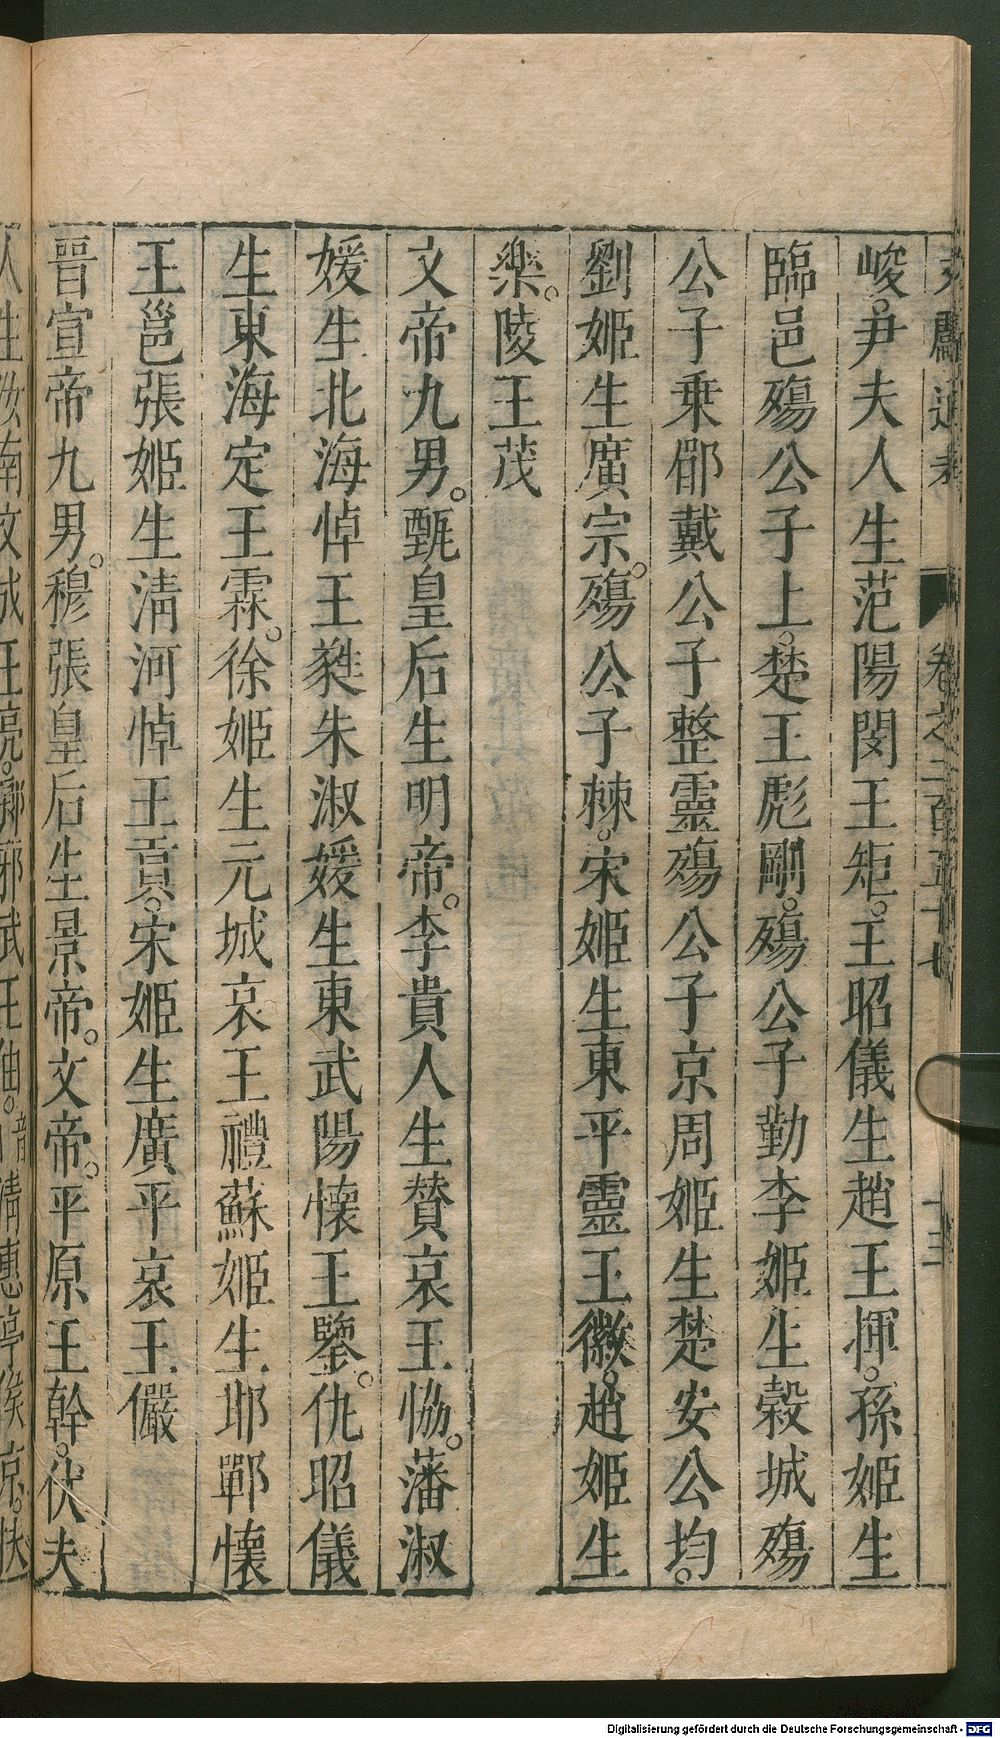 文獻通考 卷之二百五十七 十三
峻。尹夫人生范陽閔王矩。王昭儀生趙王揮。孫姬生
臨邑殤公子上。楚王彪剛。殤公子勤李姬生穀城殤
公子乘郿戴公子整靈殤公子京周姬生楚安公均。
劉姬生廣宗。殤公子棘。宋姬生東平靈王徽。趙姬生
樂。陵王茂
文帝九男。甄皇后生明帝。李貴人生贊哀王恊。藩淑
媛生北海悼王蕤朱淑媛生東武陽懷王鑒。仇昭儀
生東海定王霖。徐姬生元城哀王禮蘇姬生邯鄲懷
王邕張姬生清河悼王貢。宋姬生廣平哀王儼
晉宣帝九男。穆張皇后生景帝。文帝。平原王幹。伏夫
人生汝南文成王亮。瑯邪武王伷。音 清惠亭侯京。扶
Digitalisierung gefördert durch die Deutsche Forschungsgemeinschaft - DFG